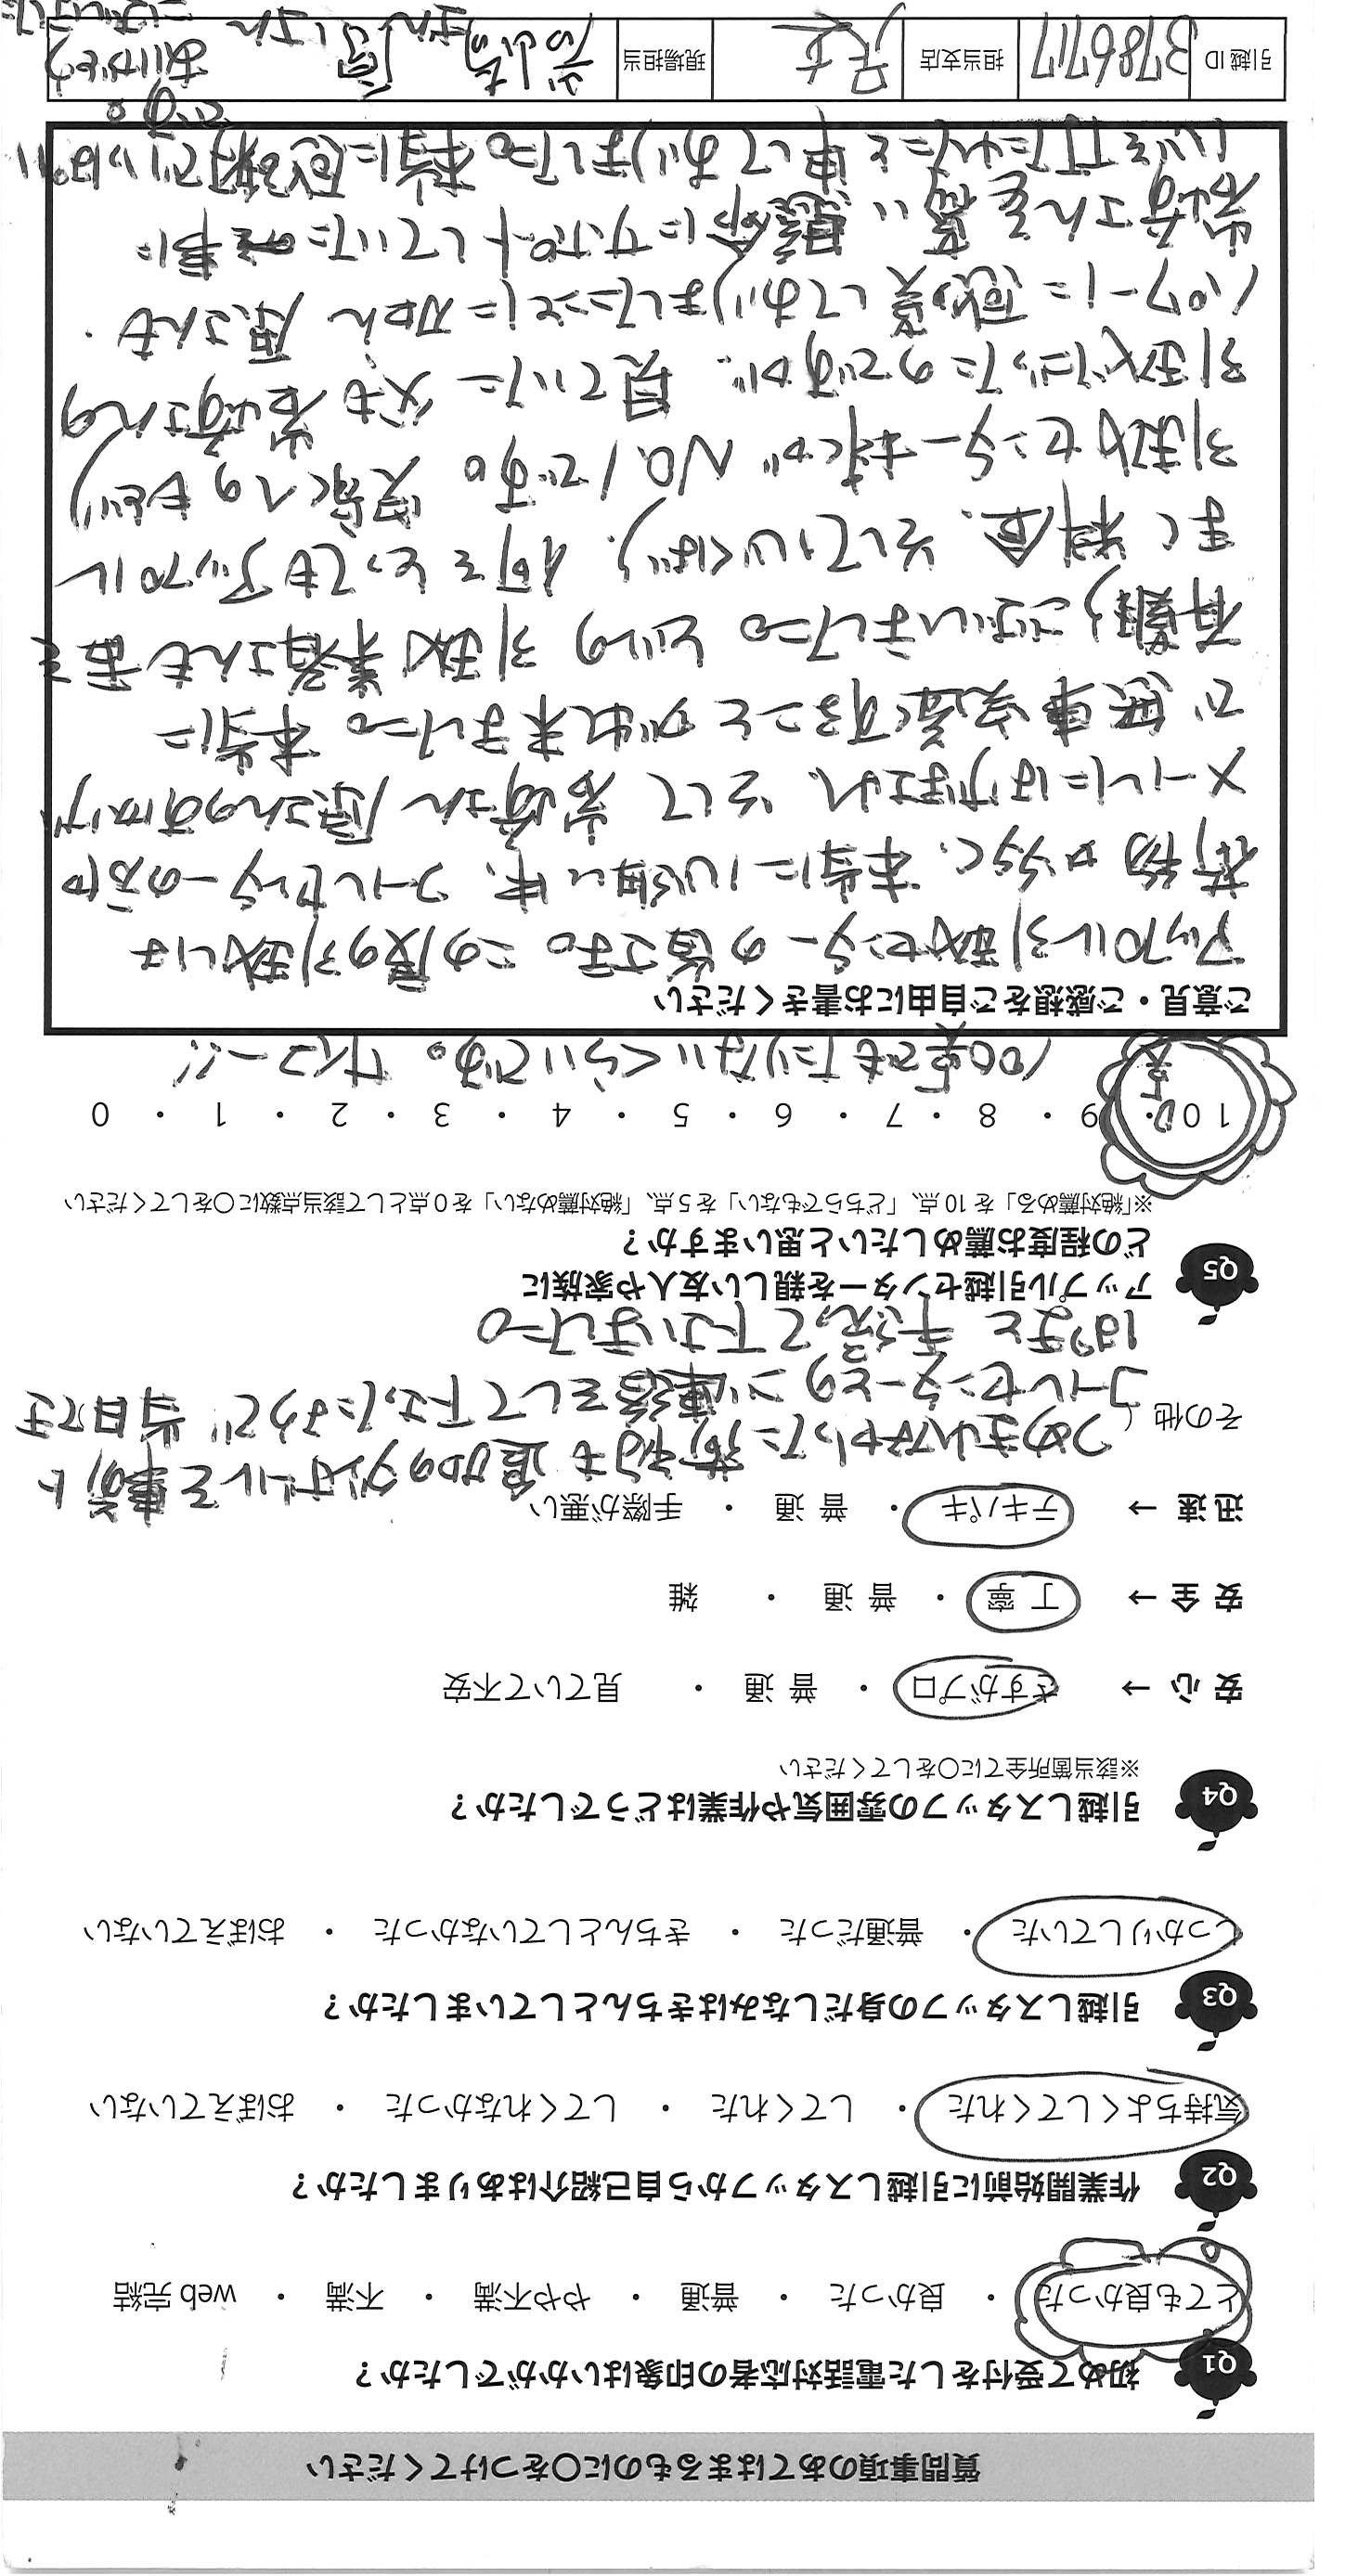 質問事項のあてはまるものに〇をつけてください
Q1 初めて受付をした電話対応者の印象はいかがでしたか？
とても良かった ・ 良かった ・ 普通 ・ やや不満 ・ 不満 ・ web完結
Q2 作業開始前に引越しスタッフから自己紹介はありましたか？
気持ちよくしてくれた ・ してくれた ・ してくれなかった ・ おぼえていない
Q3 引越しスタッフの身だしなみはきちんとしていましたか？
しっかりしていた ・ 普通だった ・ きちんとしていなかった ・ おぼえていない
Q4 引越しスタッフの雰囲気や作業はどうでしたか？
※該当箇所全てに〇をしてください
安心 → さすがプロ ・ 普通 ・ 見ていて不安
安全 → 丁寧 ・ 普通 ・ 雑
迅速 → テキパキ ・ 普通 ・ 手際が悪い
その他（ つめきれなかった荷物も追加のダンボールを事前に
コールセンターとのご連絡をして下さったようで 当日てき
ぱきと手伝って下さいました。
Q5 アップル引越センターを親しい友人や家族に
どの程度お薦めしたいと思いますか？
※「絶対薦める」を10点、「どちらでもない」を5点、「絶対薦めない」を0点として該当点数に〇をしてください
10 ・ 9 ・ 8 ・ 7 ・ 6 ・ 5 ・ 4 ・ 3 ・ 2 ・ 1 ・ 0
0点 100点でもたりないくらいです。サイコー!!
ご意見・ご感想をご自由にお書きください
アップル引越センターの皆さま。この度の引越しは
荷物が多く、本当に心細い中、コールセンターの方や
メールにはげまされ、そして 岩崎さん 原さんのおかげ
で無事完遂することが出来ました。本当に
有難うございました。どの引越業者さんも含
まて 料金、そして心くばり、何をとってもアップル
引越センターさまが No.1です。実家へのもどり
引越だったのですが、見ていた 父も岩崎さんの
パワーに感嘆しておりましたことに加え 原さんも
岩崎さんを 懸命にサポートしていた事に
心を打たれたと申しておりました。本当に感謝でいっぱい
です。
引越ID 3786717 担当支店 足立 現場担当 岩崎 原
ありがとう
ございました